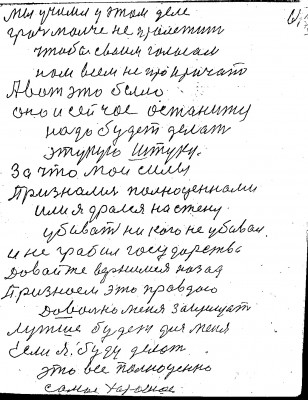 мы учимся у этом деле
гром молче не пролетит
чтоба своим голосам
нам всем не прокричат
А вот это было
оно и сейчас останиту
надо будет делат
этурую штуку.
За что мои силы
Признался полноценнами
или я дрался на стену
убиват никого не убивал
и не грабил государства
Довайте вернимся назад
Признаем это правдою
Доволно меня защищат
лутше будет для меня
Если я буду делат
это все полноценно
самое хорошое